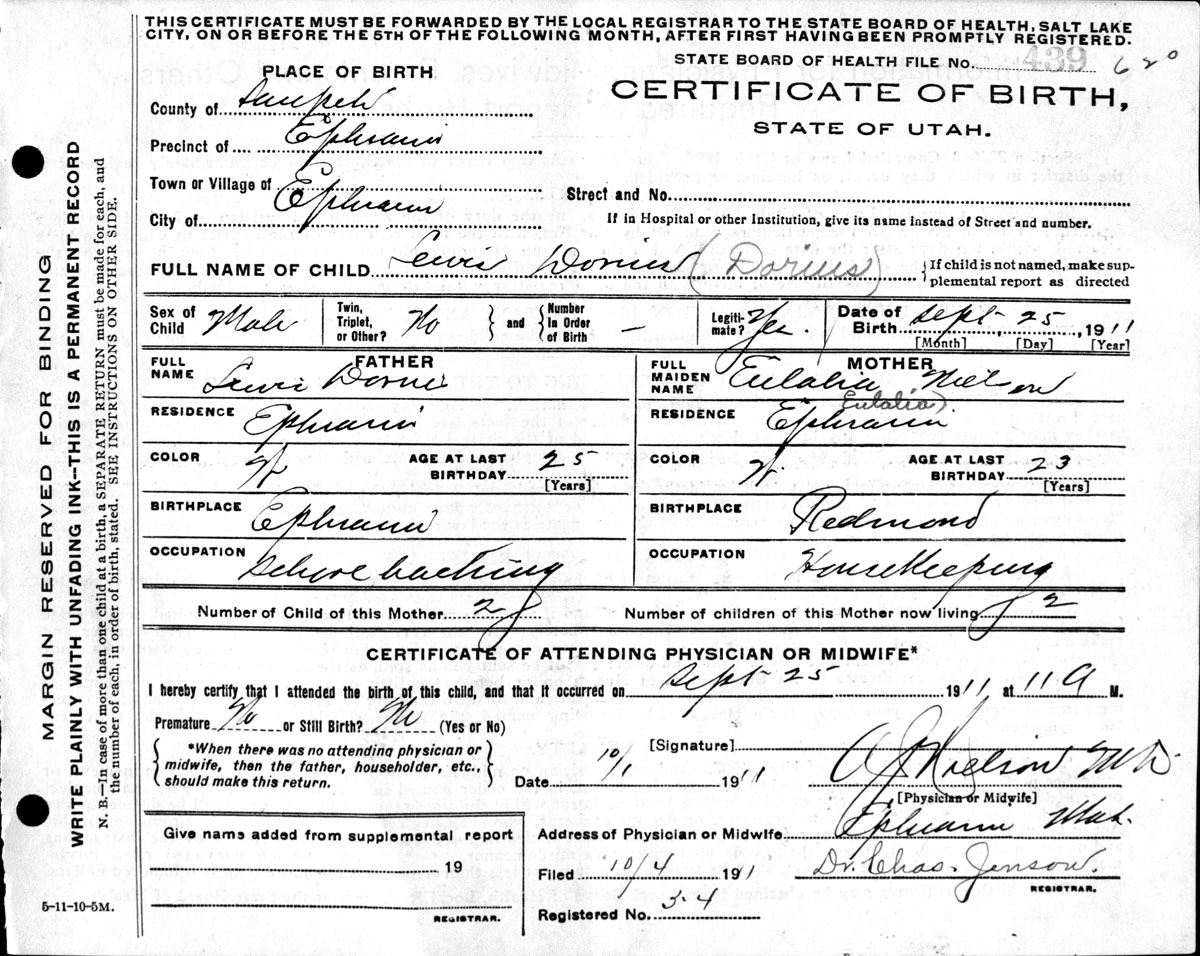 THIS CERTIFICATE MUST BE FORWARDED BY THE LOCAL REGISTRAR TO THE STATE BOARD OF HEALTH, SALT LAKE
CITY, ON OR BEFORE THE 5TH OF THE FOLLOWING MONTH, AFTER FIRST HAVING BEEN PROMPTLY REGISTERED.
STATE BOARD OF HEALTH FILE No. 439 620
PLACE OF BIRTH
CERTIFICATE OF BIRTH,
STATE OF UTAH.
County of Sanpete
Precinct of Ephraim
Town or Village of Ephraim Street and No.
City of If in Hospital or other Institution, give its name instead of Street and number.
FULL NAME OF CHILD Lewis Dorius (Dorius) {If child is not named, make sup-
plemental report as directed
Sex of Child Male Twin, Triplet, or Other? No and Number In Order of Birth – Legiti-mate? Yes Date of Birth Sept. 25, 1911
[Month] [Day] [Year]
FATHER MOTHER
FULL NAME Lewis Dorius FULL MAIDEN NAME Eulalia Nielson
(Eulalia)
RESIDENCE Ephraim RESIDENCE Ephraim
COLOR W AGE AT LAST BIRTHDAY 25 [Years] COLOR W. AGE AT LAST BIRTHDAY 23 [Years]
BIRTHPLACE Ephraim BIRTHPLACE Redmond
OCCUPATION OCCUPATION Housekeeping
Number of Child of this Mother 2 Number of children of this Mother now living 2
CERTIFICATE OF ATTENDING PHYSICIAN OR MIDWIFE*
I hereby certify that I attended the birth of this child, and that it occurred on Sept 25 1911, at 11 A M.
Premature No or Still Birth? No (Yes or No)
*When there was no attending physician or
midwife, then the father, householder, etc.,
should make this return.
[Signature] Nielson M.D.
Date 10/1 1911
[Physician or Midwife]
Address of Physician or Midwife Ephraim Utah.
Give name added from supplemental report
19
REGISTRAR.
Filed 10/4 1911 Dr. Chas. Jenson.
REGISTRAR.
Registered No. 34
5-11-10-5M.
MARGIN RESERVED FOR BINDING
WRITE PLAINLY WITH UNFADING INK--THIS IS A PERMANENT RECORD
N. B.—In case of more than one child at a birth, a SEPARATE RETURN must be made for each, and
the number of each, in order of birth, stated. SEE INSTRUCTIONS ON OTHER SIDE.